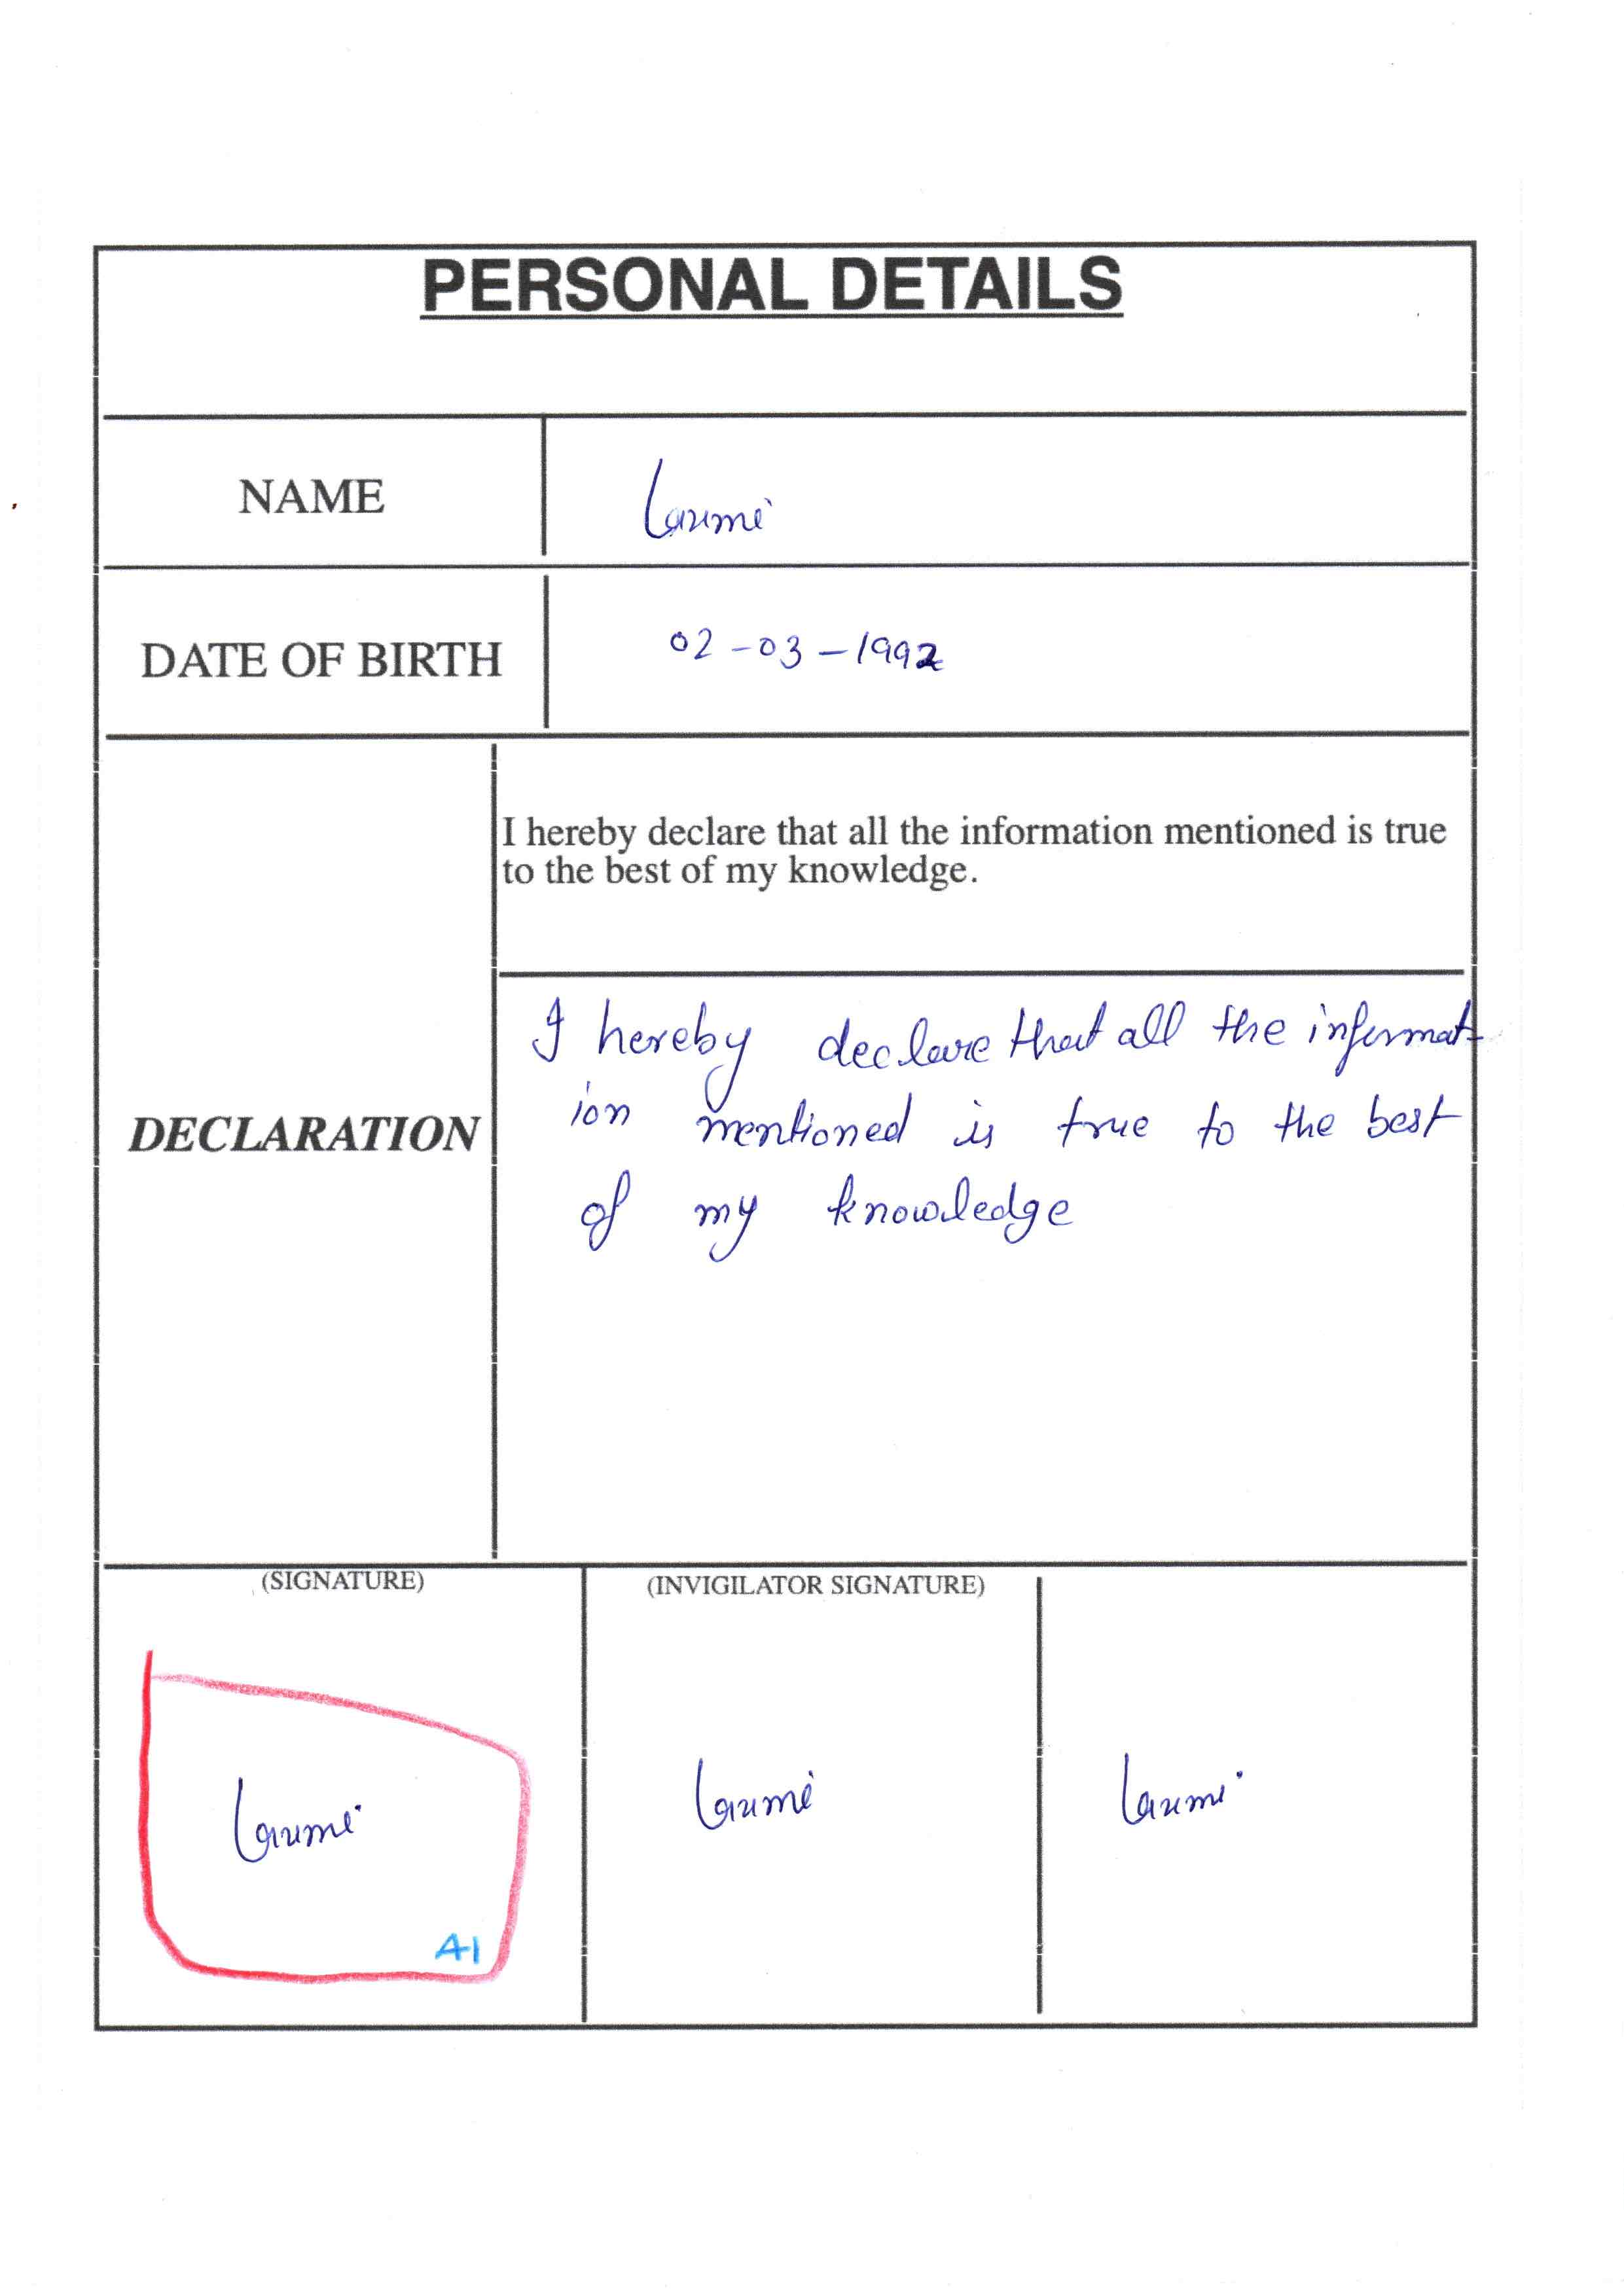 PERSONAL DETAILS
NAME
DATE OF BIRTH
02-03-1992
I hereby declare that all the information mentioned is true
to the best of my knowledge.
DECLARATION
I hereby declare that all the informat-
ion mentioned is true to the best
of my knowledge
(SIGNATURE)
(INVIGILATOR SIGNATURE)
A1